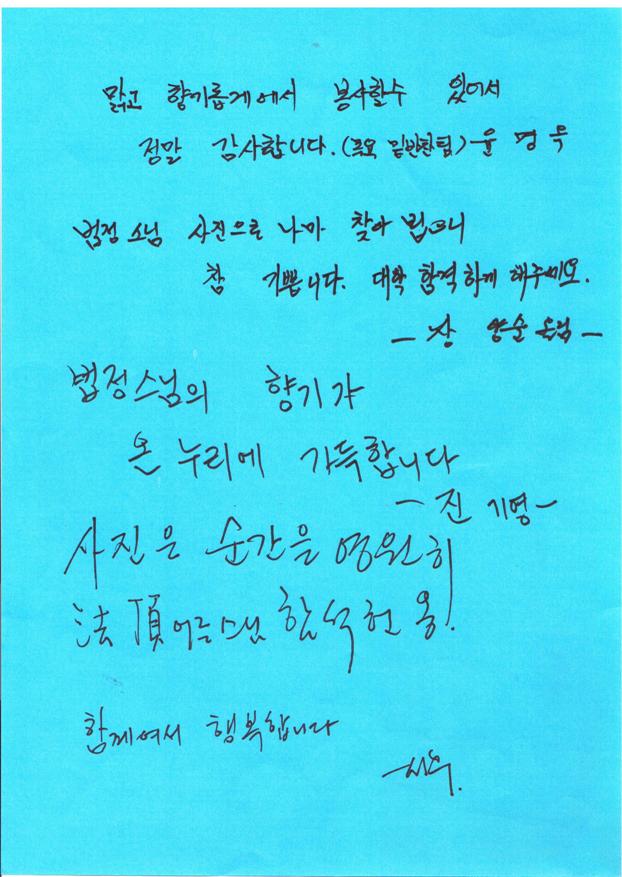 맑고 향기롭게에서 봉사할수 있어서
정말 감사합니다. 밑반찬팀)-윤 명
법정 스님 사진으로 나마 찾아 뵙으니
참 기쁩니다. 대학 합격하게 해주세요.
- 장 양순 -
법정스님의 향기가
온 누리에 가득합니다
- 진 기영 -
사진은 순간을 영원히
法頂 어른스님 함석헌 옹!
함께여서 행복합니다